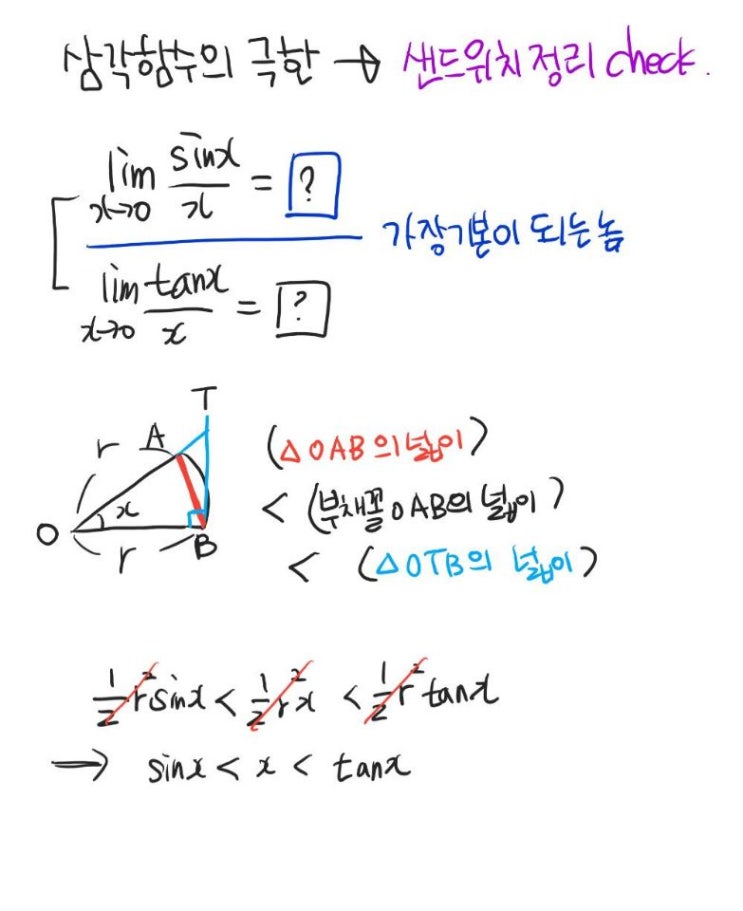 삼각함수의 극한 → 샌드위치 정리 check.
lim x→0 sinx/x = ?
가장 기본이 되는 놈
lim x→0 tanx/x = ?
T
r A
(△OAB의 넓이)
x
< (부채꼴 OAB의 넓이)
O r B
< (△OTB의 넓이)
1/2 r² sinx < 1/2 r² x < 1/2 r² tanx
→ sinx < x < tanx